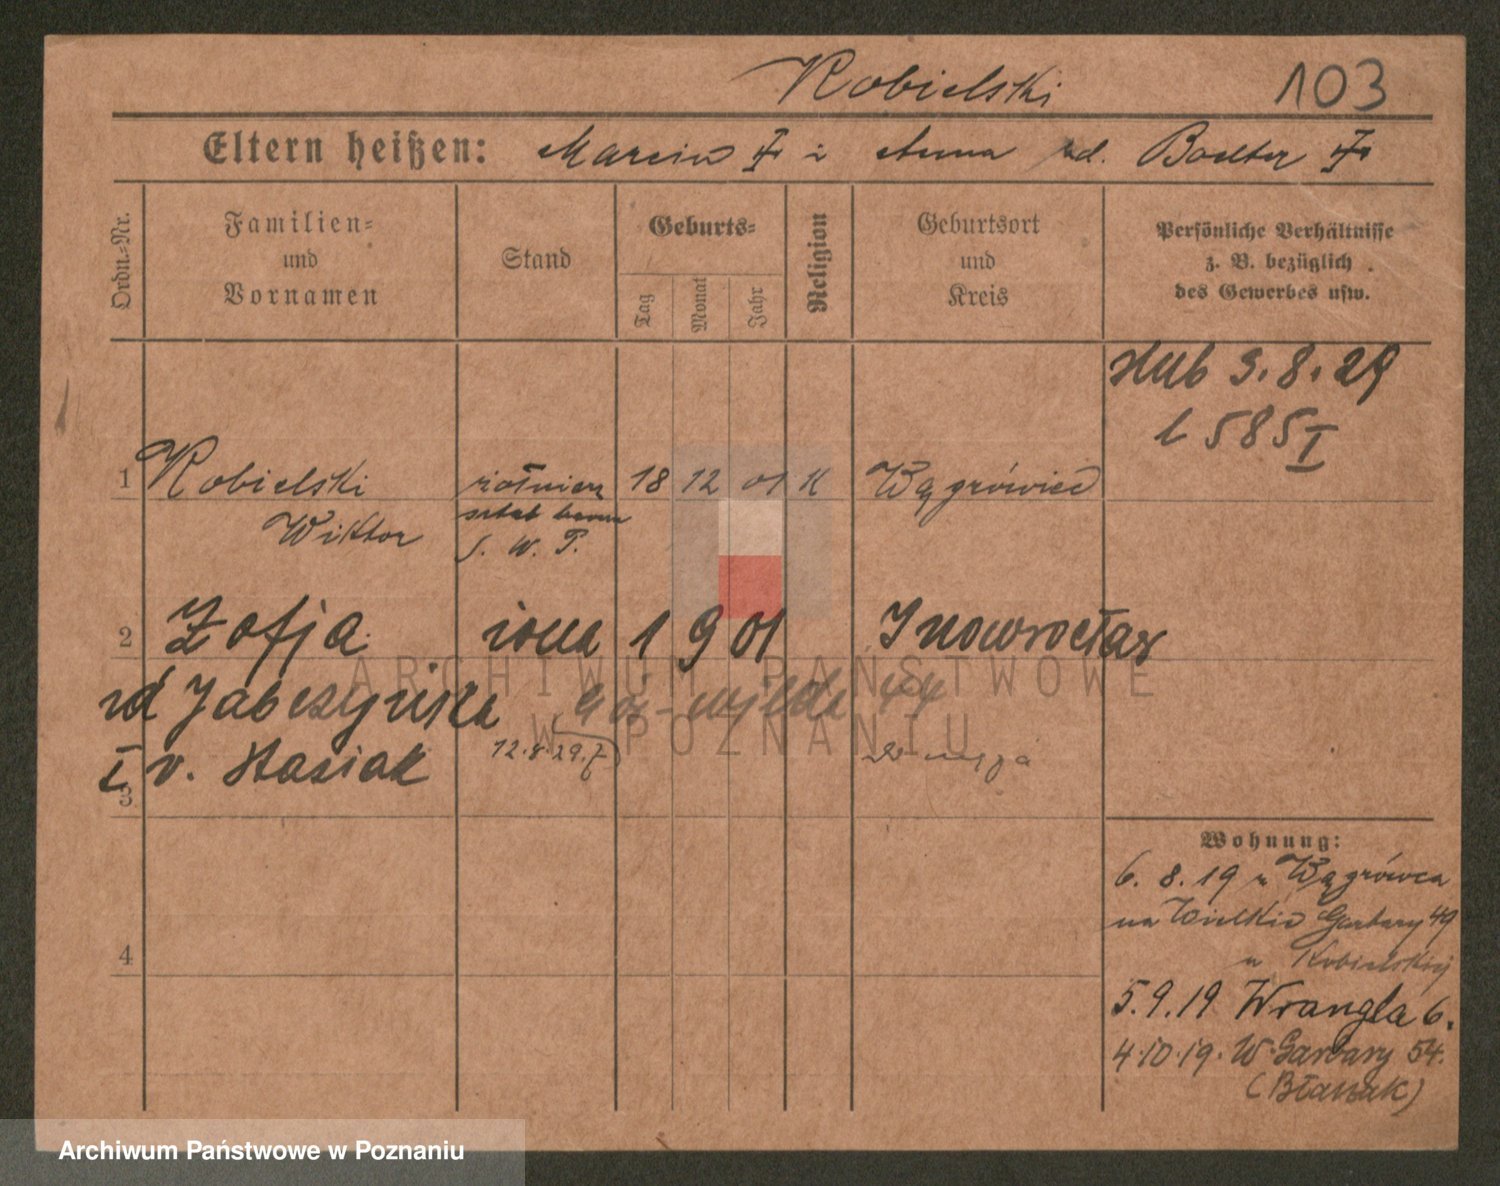 Kobielski 103
Eltern heißen: Marcin i Anna zd.
Ordn.-Nr.
Familien-
und
Vornamen
Stand
Geburts-
Tag
Monat
Jahr
Religion
Geburtsort
und
Kreis
Persönliche Verhältnisse
z. B. bezüglich
des Gewerbes usw.
ślub 3.8.29
l 585 I
1 Kobielski żołnierz 18 12 01 K Wągrówiec
Wiktor
S. W. P.
2 Zofja żona 1 9 01 Inowrocław
zd
I v. Stasiak 12.8.29.
3
Wohnung:
6. 8. 19 z Wągrówca
na Wielkie Garbary 49
u Kobielskiej
5.9.19 Wrangla 6.
4.10.19. W. Garbary 54.
4
ARCHIWUM PAŃSTWOWE
W POZNANIU
Archiwum Państwowe w Poznaniu